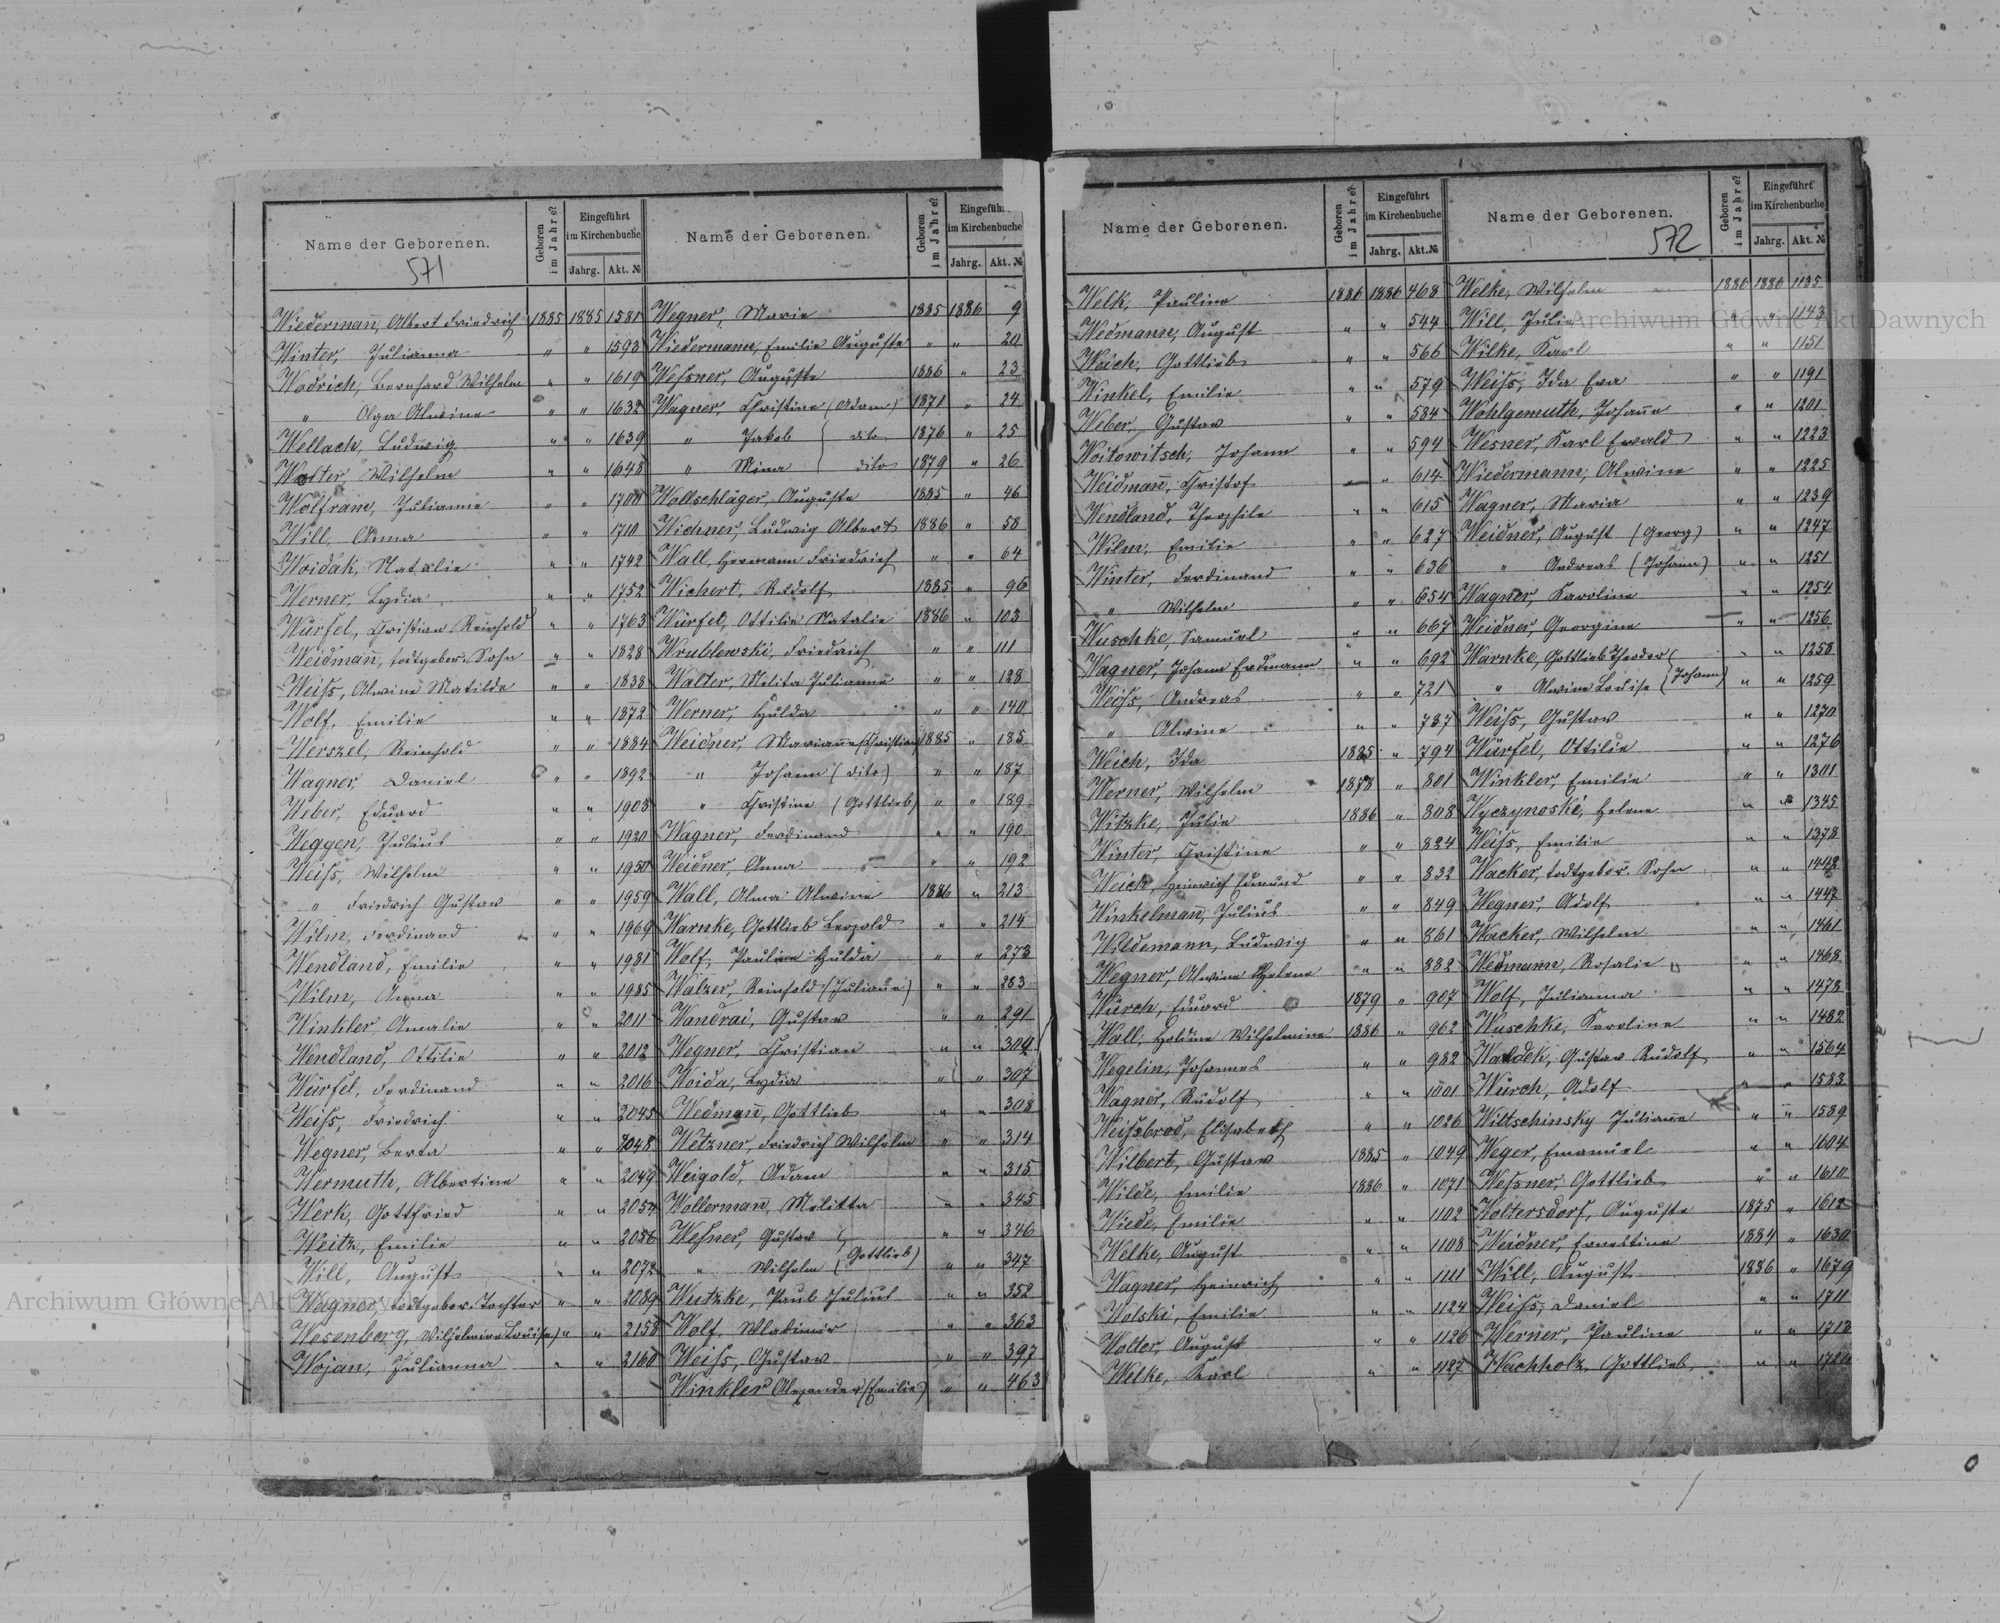 Name der Geborenen.
571
Geboren im Jahre?
Eingeführt im Kirchenbuche
Jahrg. Akt. №
Wiedermann, Albert Friedrich 1885 1885 1581
Winter, Julianna " " 1593
Wodrich, Bernhard Wilhelm " " 1619
" Olga Alwine " " 1632
Wellach, Ludwig " " 1639
Wolter, Wilhelm " " 1648
Wolfram, Julianne " " 1700
Will, Anna " " 1710
Woidak, Natalie " " 1742
Werner, Lydia " " 1752
Würfel, Christian Reinhold " " 1763
Weidmann, todtgebor. Sohn " " 1828
Weiss, Alwine Matilde " " 1838
Wolf, Emilie " " 1872
Werszel, Reinhold " " 1884
Wagner, Daniel " " 1892
Weber, Eduard " " 1903
Weggen, Julius " " 1930
Weiss, Wilhelm " " 1950
" Friedrich Gustav " " 1959
Wilm, Ferdinand " " 1969
Wendland, Emilie " " 1981
Wilm, Anna " " 1985
Winkler Amalie " " 2011
Wendland, Ottilie " " 2012
Würfel, Ferdinand " " 2016
Weiss, Friedrich " " 2045
Wegner, Berta " " 2048
Wermuth, Albertine " " 2049
Werk, Gottfried " " 2054
Weitz, Emilie " " 2056
Will, August " " 2072
Wagner, todtgebor. Tochter " " 2089
Wesenberg, Wilhelmine Louise " " 2158
Wojan, Julianna " " 2160
Name der Geborenen.
Geboren im Jahre?
Eingeführt im Kirchenbuche
Jahrg. Akt. №
Wegner, Marie 1885 1886 9
Wiedermann, Emilie Auguste " " 20
Wessner, Auguste 1886 " 23
Wagner, Christine (Adam) 1871 " 24
" Jakob dito 1876 " 25
" Mina dito 1879 " 26
Wollschläger, Auguste 1885 " 46
Wichner, Ludwig Albert 1886 " 58
Wall, Hermann Friedrich " " 64
Wichert, Rudolf 1885 " 96
Würfel, Ottilie Natalie 1886 " 103
Wrublewski, Friedrich " " 111
Walter, Melita Julianne " " 128
Werner, Hulda " " 140
Weidner, Marianne (Christian) 1885 " 185
" Johann (dito) " " 187
" Christine (Gottlieb) " " 189
Wagner, Ferdinand " " 190
Weidner, Anna " " 192
Wall, Alma Alwine 1886 " 213
Warnke, Gottlieb Leopold " " 214
Wolf, Pauline Hulda " " 273
Walzer, Reinhold (Julianne) " " 283
Wandrai, Gustav " " 291
Wegner, Christian " " 304
Woida, Lydia " " 307
Wedmann, Gottlieb " " 308
Wetzner, Friedrich Wilhelm " " 314
Weigold, Adam " " 315
Wollermann, Melitta " " 345
Wessner, Gustav " " 346
" Wilhelm (Gottlieb) " " 347
Wutzke, Paul Julius " " 352
Wolf, Wladimir " " 363
Weiss, Gustav " " 397
Winkler Alexander (Emilie) " " 463
Name der Geborenen.
Geboren im Jahre?
Eingeführt im Kirchenbuche
Jahrg. Akt. №
Welk, Pauline 1886 1886 468
Wedmann, August " " 544
Weich, Gottlieb " " 566
Winkel, Emilie " " 579
Weber, Gustav " " 584
Woitowitsch, Johann " " 594
Weidmann, Christof " " 614
Wendland, Theophile " " 615
Wilm, Emilie " " 627
Winter, Ferdinand " " 636
" Wilhelm " " 654
Wuschke, Samuel " " 667
Wagner, Johann Erdmann " " 692
Weiss, Andreas " " 721
" Alwine " " 787
Weich, Ida 1885 " 794
Werner, Wilhelm 1878 " 801
Witzke, Julie 1886 " 808
Winter, Christine " " 824
Weich, Heinrich Edmund " " 832
Winkelmann, Julius " " 849
Wildemann, Ludwig " " 861
Wegner, Alwine Helene " " 882
Würch, Eduard 1879 " 907
Wall, Holdine Wilhelmine 1886 " 962
Wegelin, Johannes " " 982
Wagner, Rudolf " " 1001
Weissbrod, Elisabeth " " 1026
Wilbert, Gustav 1885 " 1049
Wilde, Emilie 1886 " 1071
Wiede, Emilie " " 1102
Welke, August " " 1108
Wagner, Heinrich " " 1111
Wolski, Emilie " " 1124
Wolter, August " " 1126
Welke, Karl " " 1127
Name der Geborenen.
572
Geboren im Jahre?
Eingeführt im Kirchenbuche
Jahrg. Akt. №
Welke, Wilhelm 1886 1886 1135
Will, Julie " " 1143
Wilke, Karl " " 1151
Weiss, Ida Eva " " 1191
Wohlgemuth, Johanne " " 1201
Wesner, Karl Ewald " " 1223
Wiedermann, Alwine " " 1225
Wagner, Maria " " 1239
Weidner, August (Georg) " " 1247
" Andreas (Johann) " " 1251
Wagner, Karoline " " 1254
Weidner, Georgine " " 1256
Warnke, Gottlieb Theodor " " 1258
" Alwine Louise (Johann) " " 1259
Weiss, Gustav " " 1270
Würfel, Ottilie " " 1276
Winkler, Emilie " " 1301
Wyczynoski, Helene " " 1345
Weiss, Emilie " " 1378
Wacker, todtgebor. Sohn " " 1442
Wegner, Adolf " " 1447
Wacker, Wilhelm " " 1461
Wedmann, Rosalie " " 1468
Wolf, Julianna " " 1478
Wuschke, Karoline " " 1482
Waldek, Gustav Rudolf " " 1564
Würch, Adolf " " 1583
Wiltschinsky Julianne " " 1589
Weger, Emanuel " " 1604
Wessner, Gottlieb " " 1610
Woltersdorf, Auguste 1875 " 1612
Weidner, Ernestine 1884 " 1630
Will, August 1886 " 1679
Weiss, Daniel " " 1711
Werner, Pauline " " 1713
Wachholz, Gottlieb " "
Archiwum Główne Akt Dawnych
Archiwum Główne Akt Dawnych